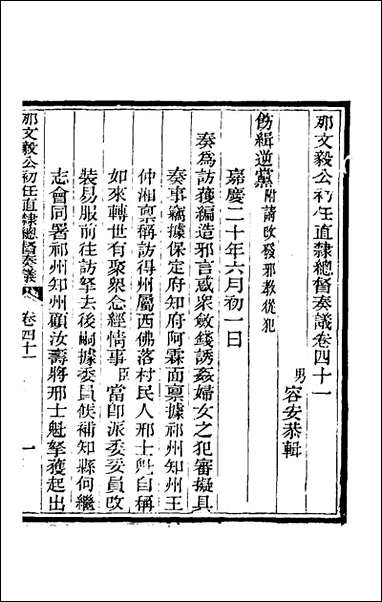 那文毅公初任直隸總督奏議卷四十一
男 容安恭輯
飭緝逆黨附請改發邪教從犯
嘉慶二十年六月初一日
奏為訪獲編造邪言惑衆斂錢誘姦婦女之犯審擬具
奏事竊據保定府知府阿霖面稟據祁州知州王
仲湘稟稱訪得州屬西佛落村民人邢士魁自稱
如來轉世有聚衆念經情事臣當即派委委員改
裝易服前往訪拏去後嗣據委員候補知縣何繼
志會同署祁州知州顧汝壽將邢士魁拏獲起出
那文毅公初任直隸總督奏議
卷四十一
一